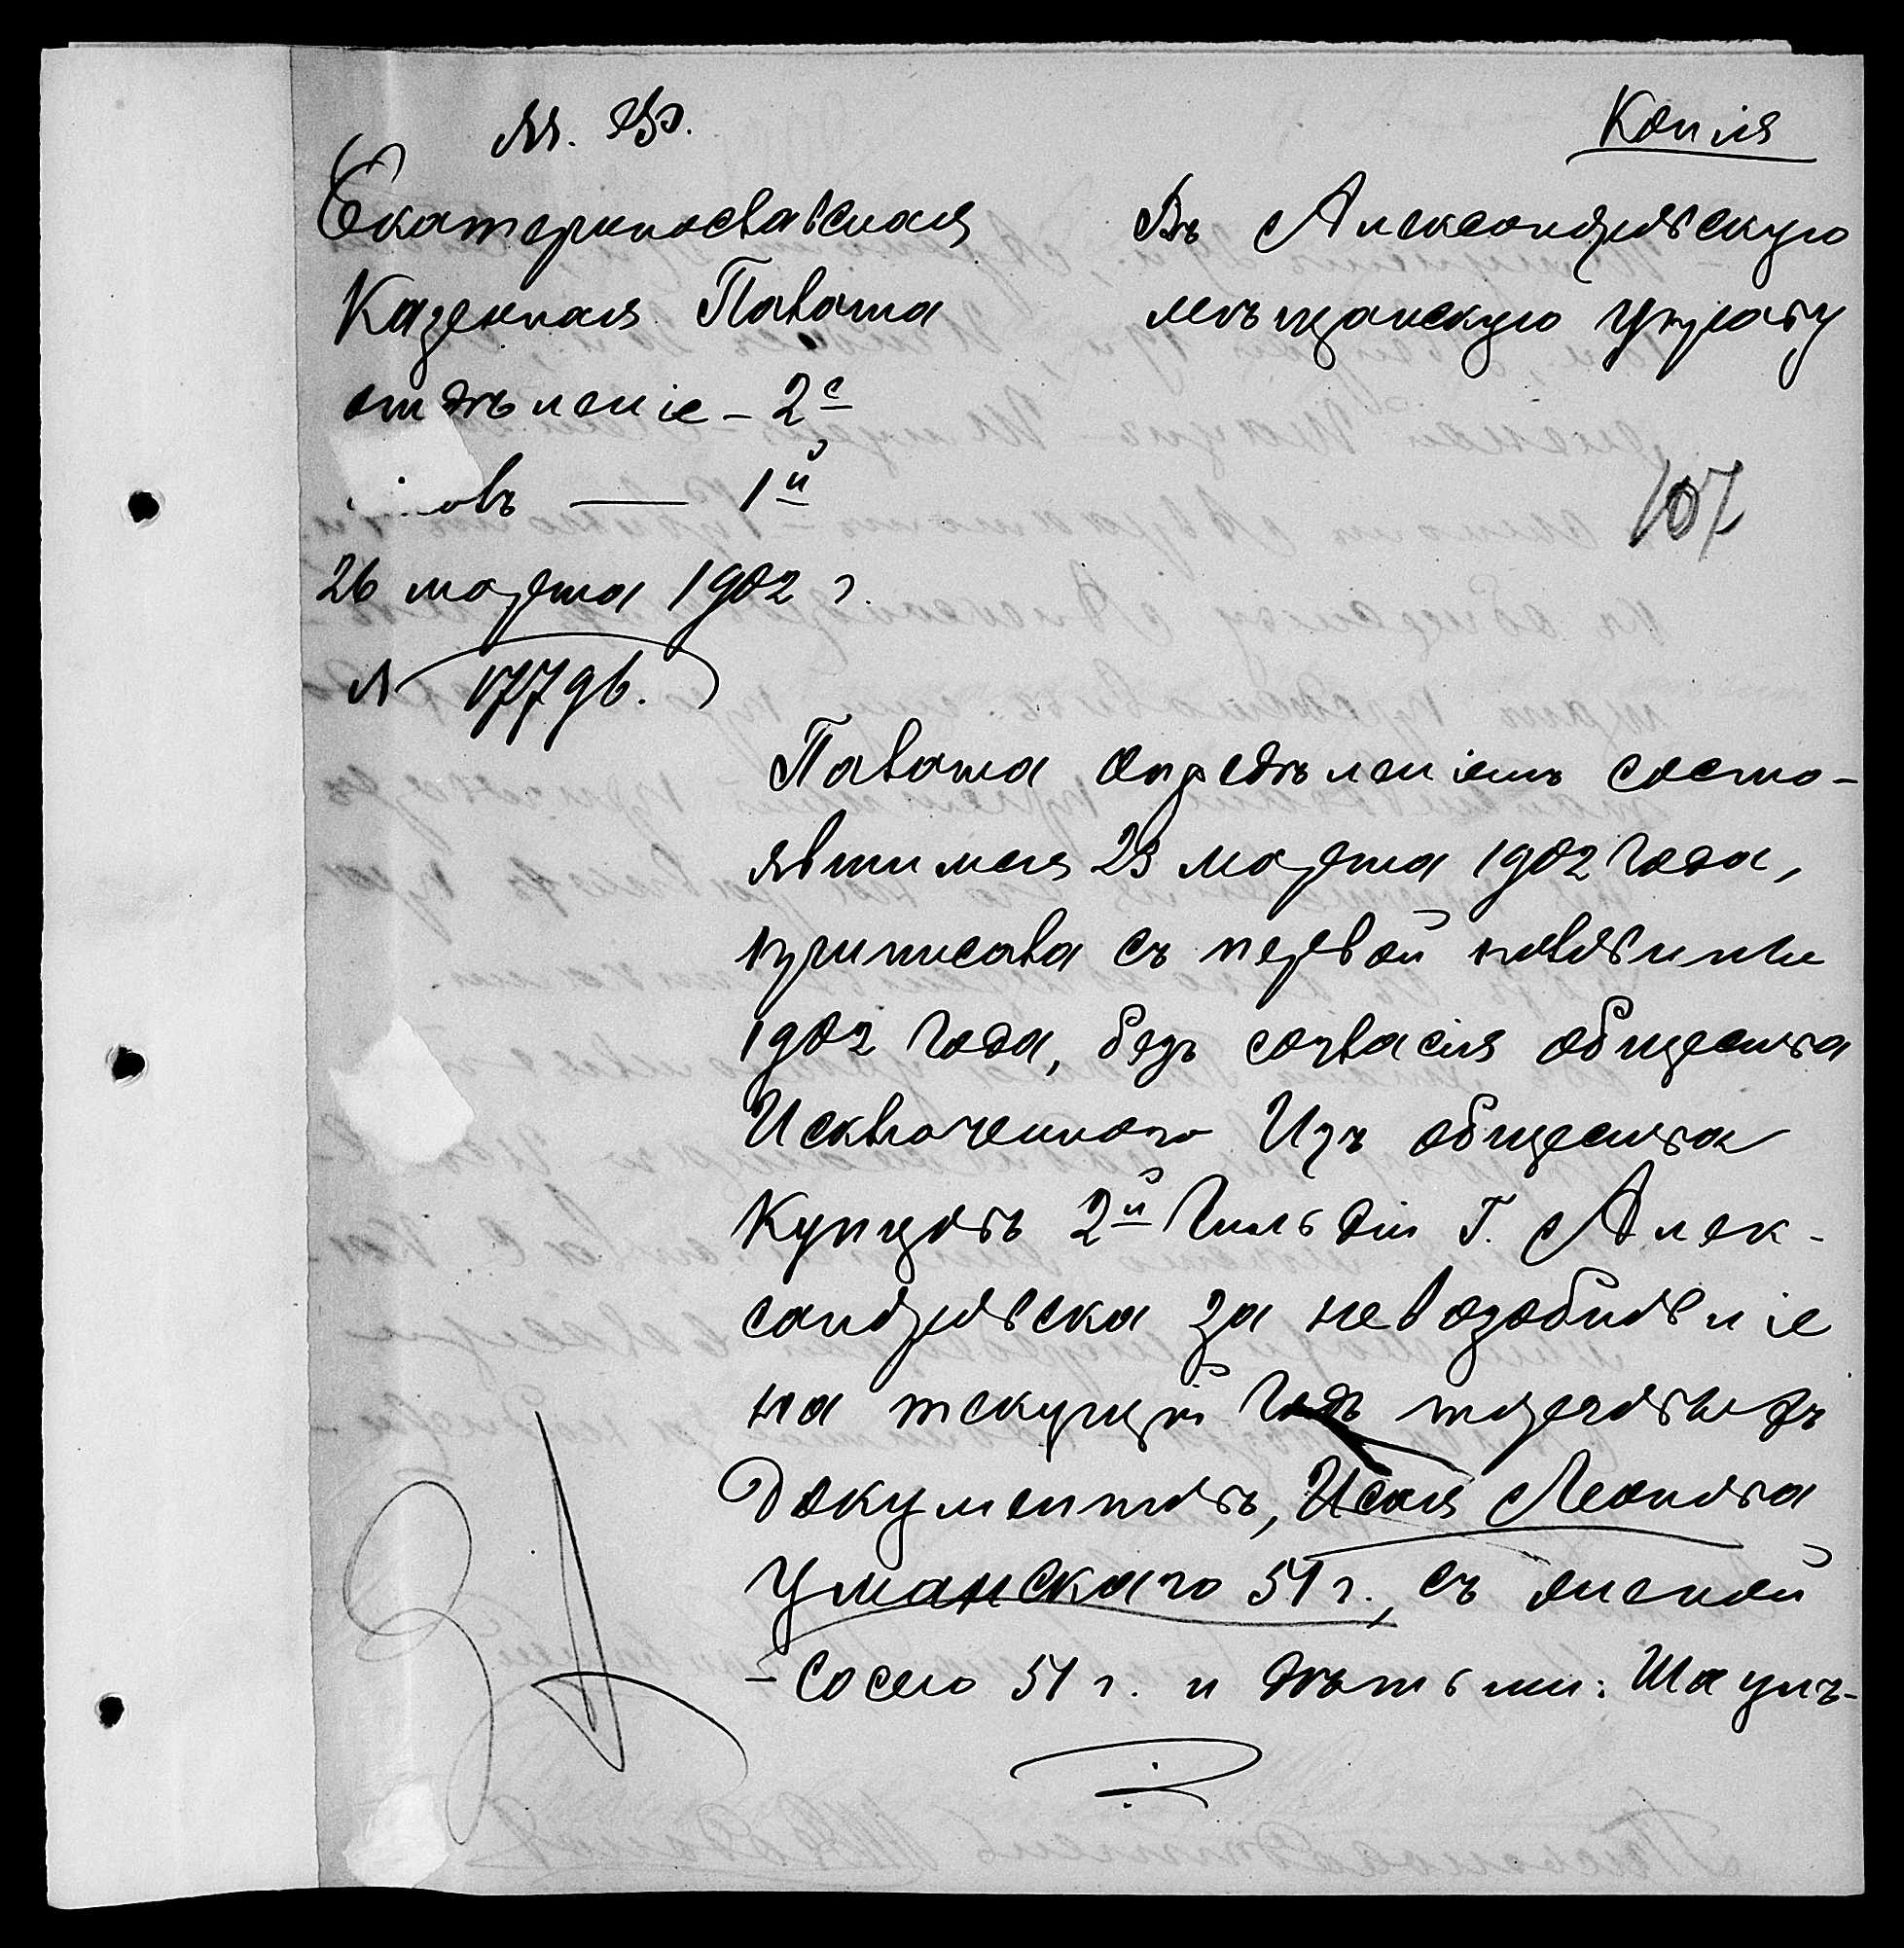 М. Ф.
Копія
Екатеринославская
Казенная Палата
отдѣленіе – 2е
овъ — 1й
26 марта 1902 г.
№ 17796.
Въ Александровскую
мѣщанскую Управу
107
Палата опредѣленіемъ состо-
явшимся 23 марта 1902 года,
приписала съ первой половины
1902 года, безъ согласія общества
Исключеннаго Изъ общества
Купцовъ 2й Гильдіи Г. Алек-
сандровска за невозобновленіе
на текущій Годъ торговыхъ
Документовъ, Исая Леонова
Уманскаго 51 г., съ женой
- Сосею 51 г. и дѣтьми: Шауль-